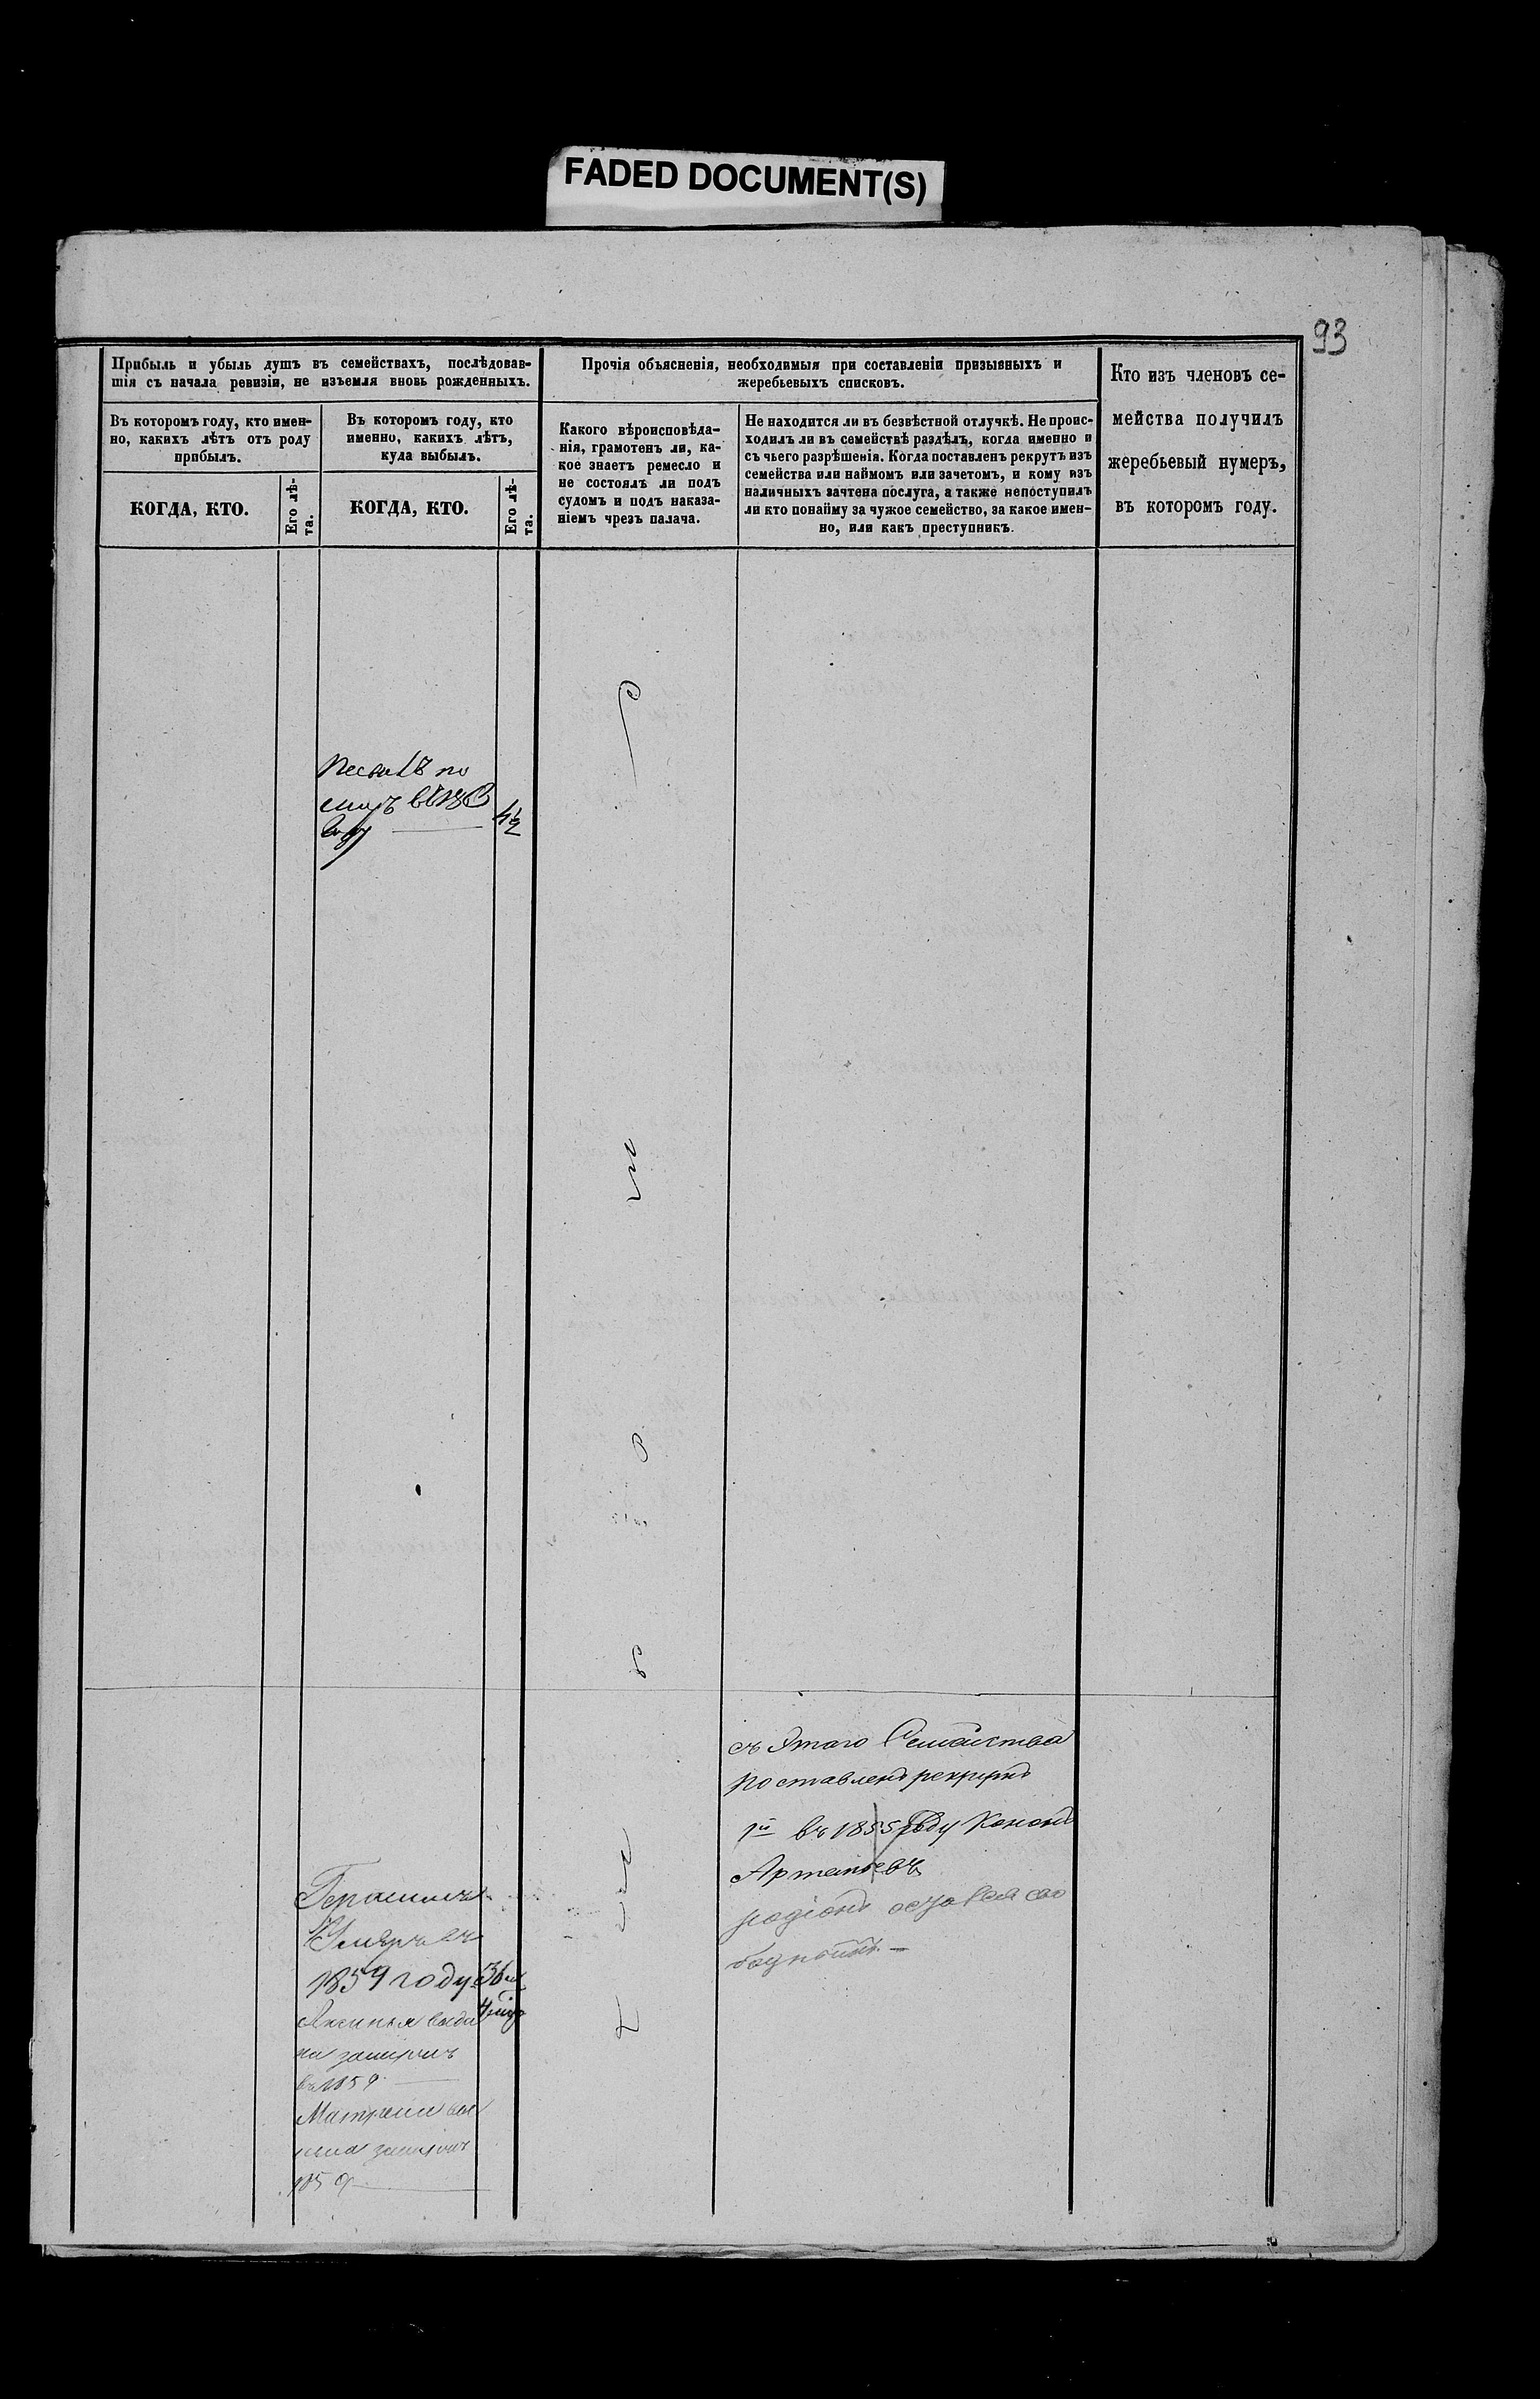 FADED DOCUMENT(S)
93
Прибыль и убыль душъ въ семействахъ, послѣдовав-
шія съ начала ревизіи, не изъемля вновь рожденныхъ.
Въ которомъ году, кто имен-
но, какихъ лѣтъ отъ роду
прибылъ.
КОГДА, КТО.
Его лѣ-
та.
Въ которомъ году, кто
именно, какихъ лѣтъ,
куда выбылъ.
КОГДА, КТО.
Его лѣ-
та.
Прочія объясненія, необходимыя при составленіи призывныхъ и
жеребьевыхъ списковъ.
Какого вѣроисповѣда-
нія, грамотенъ ли, ка-
кое знаетъ ремесло и
не состоялъ ли подъ
судомъ и подъ наказа-
ніемъ чрезъ палача.
Не находится ли въ безвѣстной отлучкѣ. Не проис-
ходилъ ли въ семействѣ раздѣлъ, когда именно и
съ чьего разрѣшенія. Когда поставленъ рекрутъ изъ
семейства или наймомъ или зачетомъ, и кому изъ
наличныхъ зачтена послуга, а также непоступилъ
ли кто понайму за чужое семейство, за какое имен-
но, или какъ преступникъ.
Кто изъ членовъ се-
мейства получилъ
жеребьевый нумеръ,
въ которомъ году.
году
съ Этаго Семейства
поставленъ рекрутъ
1й въ 1855 году Кононъ
Артемьевъ
Герасимъ
Умеръ
1859 году 36
Аксинья выда
на замужъ
въ 1859
замужъ
1859